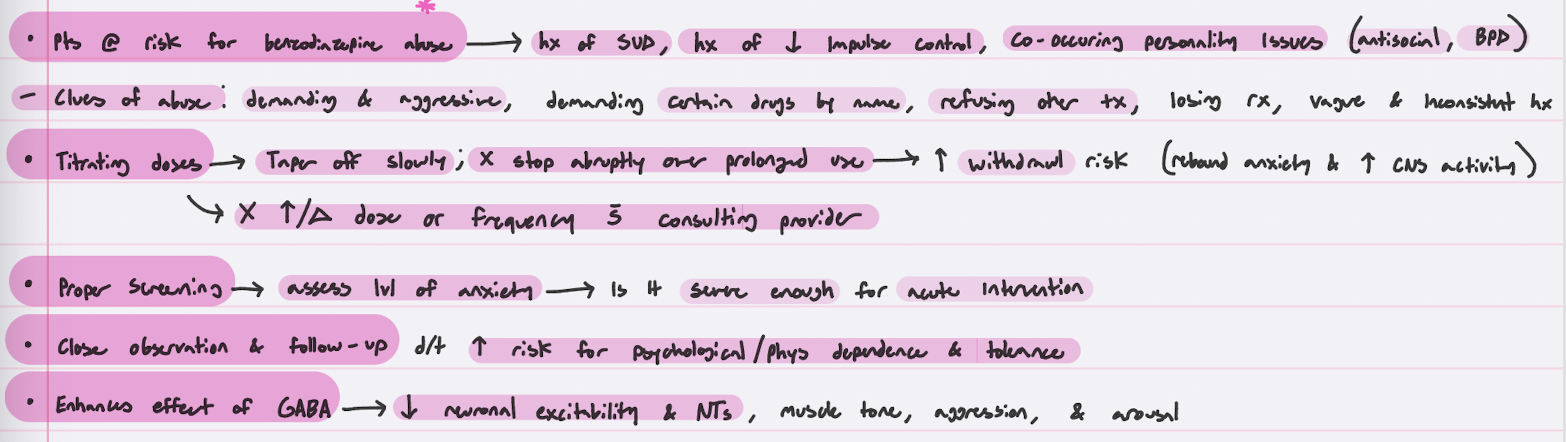 * • Pts @ risk for benzodiazepine abuse → hx of SUD, hx of ↓ impulse control, co-occuring personality issues (antisocial, BPD)
– Clues of abuse: demanding & aggressive, demanding certain drugs by name, refusing other tx, losing rx, vague & inconsistent hx
• Titrating doses → Taper off slowly; X stop abruptly over prolonged use → ↑ withdrawl risk (rebound anxiety & ↑ CNS activity)
↳ X ↑/Δ dose or frequency s̄ consulting provider
• Proper screening → assess lvl of anxiety → is it severe enough for acute intervention
• Close observation & follow-up d/t ↑ risk for psychological/phys dependence & tolerance
• Enhances effect of GABA → ↓ neuronal excitability & NTs, muscle tone, aggression, & arousal